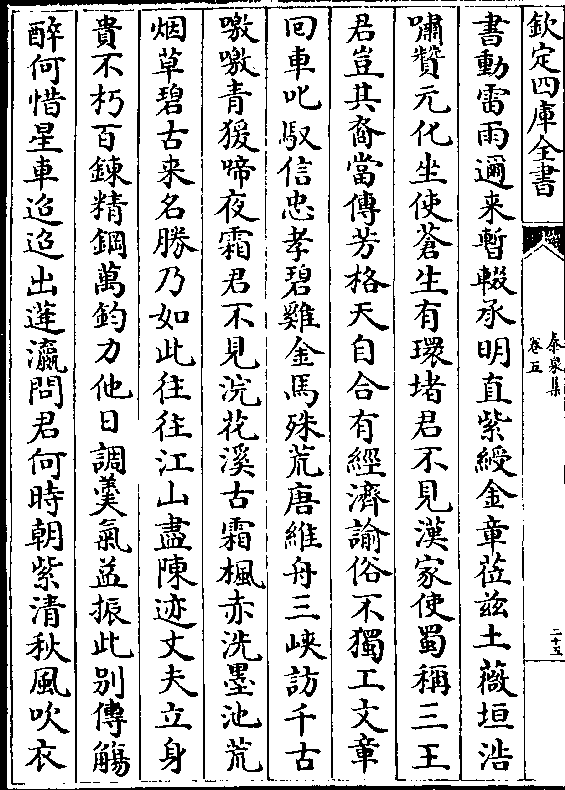 欽定四庫全書
泰泉集
卷五
二十五
書動雷雨邇来暫輟承明直紫綬金章莅兹土薇垣浩
嘯贊元化坐使蒼生有環堵君不見漢家使蜀稱三王
君豈其裔當傳芳格天自合有經濟諭俗不獨工文章
回車叱馭信忠孝碧雞金馬殊荒唐維舟三峡訪千古
噭噭青猨啼夜霜君不見浣花溪古霜楓赤洗墨池荒
烟草碧古来名勝乃如此往往江山盡陳迹丈夫立身
貴不朽百鍊精鋼萬鈞力他日調羮氣益振此别傳觴
醉何惜星車迢迢出蓬瀛問君何時朝紫清秋風吹衣